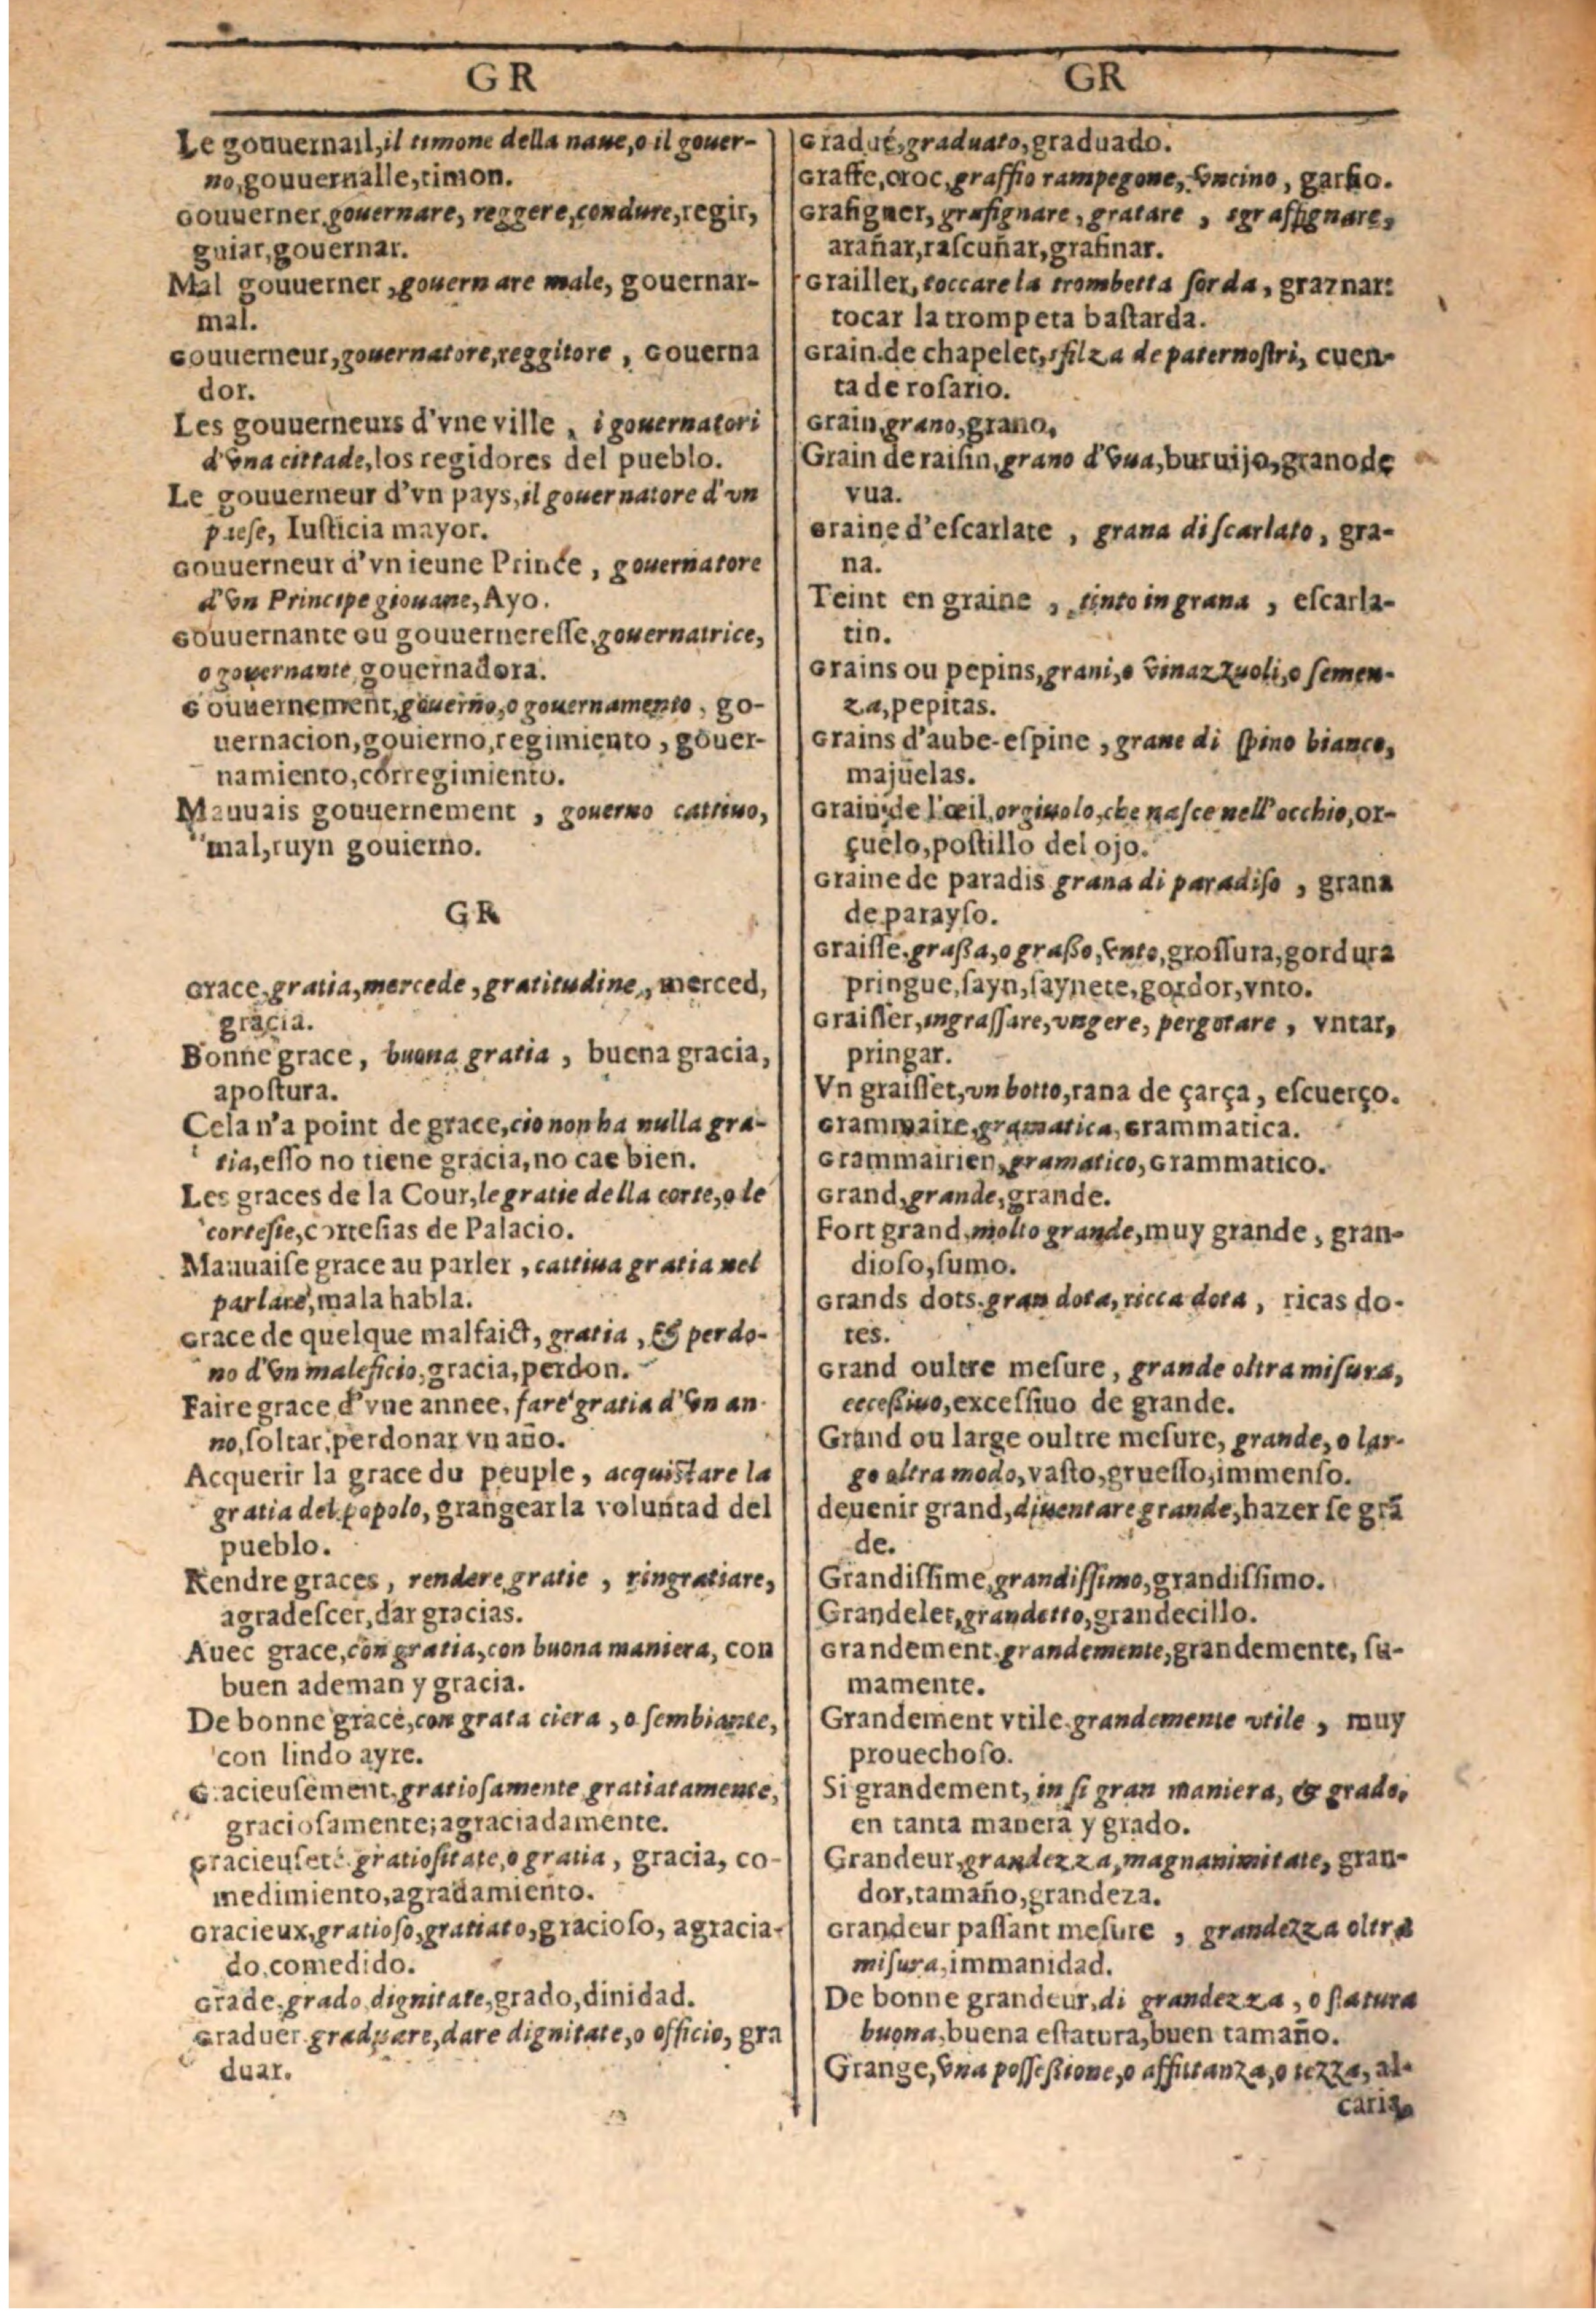 GR
GR
Le gouuernail, il timone della naue, o il gouer-
no, gouuernalle, timon.
Gouuerner, gouernare, reggere, condure, regir,
guiar, gouernar.
Mal gouuerner, gouernare male, gouernar-
mal.
Gouuerneur, gouernatore, reggitore, Gouerna
dor.
Les gouuerneurs d'vne ville, i gouernatori
d'vna cittade, los regidores del pueblo.
Le gouuerneur d'vn pays, il gouernatore d'vn
paese, Iusticia mayor.
Gouuerneur d'vn ieune Prince, gouernatore
d'vn Principe giouane, Ayo.
Gouuernante ou gouuerneresse, gouernatrice,
o gouernante, gouernadora.
Gouuernement, gouerno, o gouernamento, go-
uernacion, gouierno, regimiento, gouer-
namiento, corregimiento.
Mauuais gouuernement, gouerno cattiuo,
mal, ruyn gouierno.
GR
Grace, gratia, mercede, gratitudine, merced,
gracia.
Bonne grace, buona gratia, buena gracia,
apostura.
Cela n'a point de grace, cio non ha nulla gra-
tia, esso no tiene gracia, no cae bien.
Les graces de la Cour, le gratie della corte, o le
cortesie, cortesias de Palacio.
Mauuaise grace au parler, cattiua gratia nel
parlare, mala habla.
Grace de quelque malfaict, gratia, & perdo-
no d'vn maleficio, gracia, perdon.
Faire grace d'vne annee, fare gratia d'vn an-
no, soltar, perdonar vn año.
Acquerir la grace du peuple, acquistare la
gratia del popolo, grangear la voluntad del
pueblo.
Rendre graces, rendere gratie, ringratiare,
agradescer, dar gracias.
Auec grace, con gratia, con buona maniera, con
buen ademan y gracia.
De bonne grace, con grata ciera, o sembiante,
con lindo ayre.
Gracieusement, gratiosamente gratiatamente,
graciosamente; agraciadamente.
Gracieuseté gratiositate, o gratia, gracia, co-
medimiento, agradamiento.
Gracieux, gratioso, gratiato, gracioso, agracia-
do, comedido.
Grade, grado, dignitate, grado, dinidad.
Graduer, graduare, dare dignitate, o officio, gra
duar.
Gradué, graduato, graduado.
Graffe, croc, graffio rampegone, vncino, garfio.
Grafigner, grafignare, gratare, sgraffignare,
arañar, rascuñar, grafinar.
Grailler, toccare la trombetta sorda, graznar:
tocar la trompeta bastarda.
Grain de chapelet, sfilza de paternostri, cuen-
ta de rosario.
Grain, grano, grano.
Grain de raisin, grano d'vua, buruijo, grano de
vua.
Graine d'escarlate, grana di scarlato, gra-
na.
Teint en graine, tinto in grana, escarla-
tin.
Grains ou pepins, grani, o vinazzuoli, o semen-
za, pepitas.
Grains d'aube-espine, grane di spino bianco,
majuelas.
Grain de l'œil, orgiuolo, che nasce nell'occhio, or-
çuelo, postillo del ojo.
Graine de paradis grana di paradiso, grana
de parayso.
Graisse, grassa, o grasso, vnto, grossura, gordura
pringue, sayn, saynete, gordor, vnto.
Graisser, ingrassare, vngere, pergotare, vntar,
pringar.
Vn graisset, vn botto, rana de çarça, escuerço.
Grammaire, gramatica, Grammatica.
Grammairien, gramatico, Grammatico.
Grand, grande, grande.
Fort grand, molto grande, muy grande, gran-
dioso, sumo.
Grands dots, gran dota, ricca dota, ricas do-
tes.
Grand oultre mesure, grande oltra misura,
eccessiuo, excessiuo de grande.
Grand ou large oultre mesure, grande, o lar-
go altra modo, vasto, gruesso, immenso.
deuenir grand, diuentare grande, hazer se grā
de.
Grandissime, grandissimo, grandissimo.
Grandelet, grandetto, grandecillo.
Grandement, grandemente, grandemente, su-
mamente.
Grandement vtile, grandemente vtile, muy
prouechoso.
Si grandement, in si gran maniera, & grado,
en tanta manera y grado.
Grandeur, grandezza, magnanimitate, gran-
dor, tamaño, grandeza.
Grandeur passant mesure, grandezza oltra
misura, immanidad.
De bonne grandeur, di grandezza, o statura
buona, buena estatura, buen tamaño.
Grange, vna possessione, o affittanza, o tezza, al-
caria,